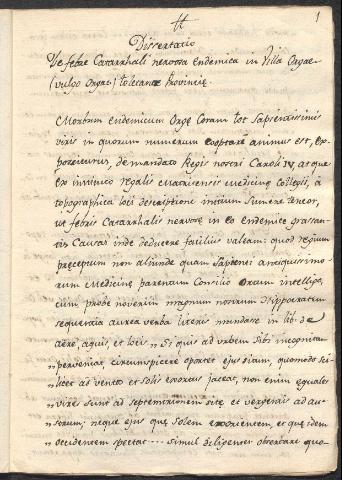 1
Dissertatio
De febre Catarrhali nervosa endemica in Villa Orgaz
(vulgo Orgaz) toletanæ Provinciæ.
Morbum endemicum Orgæ Coram tot Sapientissimis
viris in quorum numerum cooptare animus est, ex-
positurus, de mandato Regis nostri Caroli IV, atque
ex instituto regalis matritensis medicinæ Collegii, à
topographica loci descriptione initium Sumere teneor,
ut febris Catarrhalis nervosæ in eo endemice grassan-
tis Causas inde deducere facilius valeam: quod regium
preceptum non aliunde quam Sapienti antiquissimo-
rum Medicinæ parentum Consilio ortum intelligo,
cum probe noverim magnum nostrum Hippocratem
sequentia aurea verba literis mandasse in lib. de
aere, aquis, et locis „ Si quis ad urbem sibi incognitam
„ perveniat, circumspicere oportet ejus situm, quomodo sci-
„ licet ad ventos et solis exortus jaceat, non enim equales
„ vires sunt ad septemtrionem sitæ et vergentis ad au-
„ strum; neque ejus quæ Solem exorientem, et quæ idem
„ occidentem spectat .... simul diligenter observare quo-